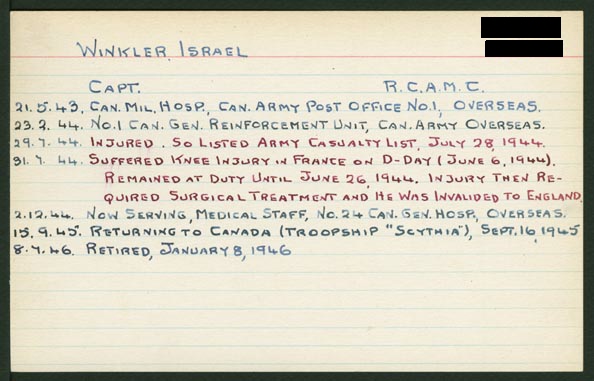 WINKLER, ISRAEL
CAPT. R.C.A.M.C.
21.5.43. CAN. MIL. HOSP., CAN. ARMY POST OFFICE NO.1, OVERSEAS.
23.2.44. NO.1 CAN. GEN. REINFORCEMENT UNIT, CAN. ARMY OVERSEAS.
29.7.44. INJURED. SO LISTED ARMY CASUALTY LIST, JULY 28, 1944.
31.7.44. SUFFERED KNEE INJURY IN FRANCE ON D-DAY (JUNE 6, 1944).
REMAINED AT DUTY UNTIL JUNE 26, 1944. INJURY THEN RE-
QUIRED SURGICAL TREATMENT AND HE WAS INVALIDED TO ENGLAND.
2.12.44. NOW SERVING, MEDICAL STAFF, NO. 24 CAN. GEN. HOSP., OVERSEAS.
15.9.45. RETURNING TO CANADA (TROOPSHIP "SCYTHIA"), SEPT. 16, 1945
8.7.46. RETIRED, JANUARY 8, 1946